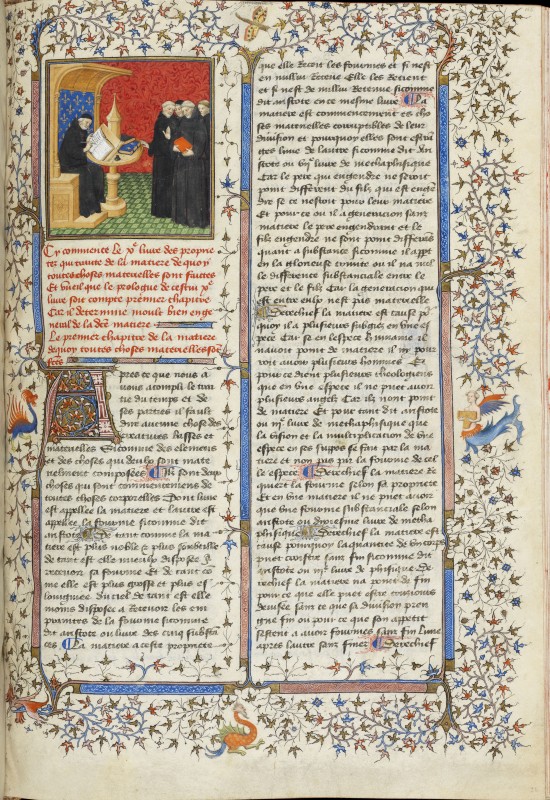 Cy commence le xe livre des proprie
tez qui traite de la matiere de quoy
toutes choses materielles sont faittes
Et vueil que le prologue de cestui xe
livre soit compte premier chapitre
Car il determine moult bien en ge
neral de la dcte matiere
Le premier chapitre de la matiere
de quoy toutes choses materielles sont
Apres ce que nous a
vons acompli le trai
tie du temps et de
ses parties il fault
dire aucune chose des
creatures basses et
materielles Sicomme des elemens
et des choses qui deulx sont mate
riement composees Ilz sont deux
choses qui sont commencemens de
toutes choses corporelles Dont lune
est appellee la matiere et lautre est
appellee la fourme sicomme dit
aristote De tant comme la ma
tiere est plus noble et plus soubtille
de tant est elle mieulx disposee a
recevoir sa fourme Et de tant co
me elle est plus grosse et plus es
longniee du ciel de tant est elle
moins disposee a recevoir les em
praintes de la fourme sicomme
dit aristote ou livre des cinq substa
ces La matiere a ceste propriete
que elle recoit les fourmes et si nest
en nullui receue Elle les retient
et si nest de nullui retenue sicomme
dit aristote en ce mesme livre La
matiere est commencement es cho
ses materielles corruptibles de leur
division et pourquoy elles sont distin
ctes lune de lautre sicomme dit Ari
stote ou livre de methaphisique
Car le pere qui engendre ne seroit
point different du filz qui est engen
dre se ce nestoit pour leur matiere
Et pour ce ou il a generacion sans
matiere le pere engendrant et le
filz engendre ne sont point differens
quant a substance sicomme il appt
en la glorieuse trinite ou il na nul
le difference substanciale entre le
pere et le filz Car la generacion qui
est entre eulx nest pas materielle
Derechief la matiere est cause po
quoy il a plusieurs subgiez en une es
pece Car se en lespece humaine il
navoit point de matiere il ny pour
roit avoir plusieurs hommes Et
pour ce dient plusieurs theologiens
que en une espece il ne puet avoir
plusieurs angelz Car ilz nont point
de matiere Et pour tant dit aristote
ou livre de methaphisique que
la division et la multiplicacion de une
espece en ses supos se fait par la ma
tiere et non pas par la fourme de cel
le espece Derechief la matiere re
quiert la fourme selon sa propriete
Et en une matiere il ne puet avoir
que une fourme substanciale selon
aristote ou livre de metha
phisique Derechief la matiere est
cause pourquoy la quantite de un corps
puet croistre sans fin sicomme dit
aristote ou livre de phisique De
rechief la matiere na point de fin
pour ce que elle puet estre tousiours
devisee sans ce que sa division pren
gne fin ou pour ce que son appetit
sestent a avoir fourmes sans fin lune
apres lautre sans finer Derechief